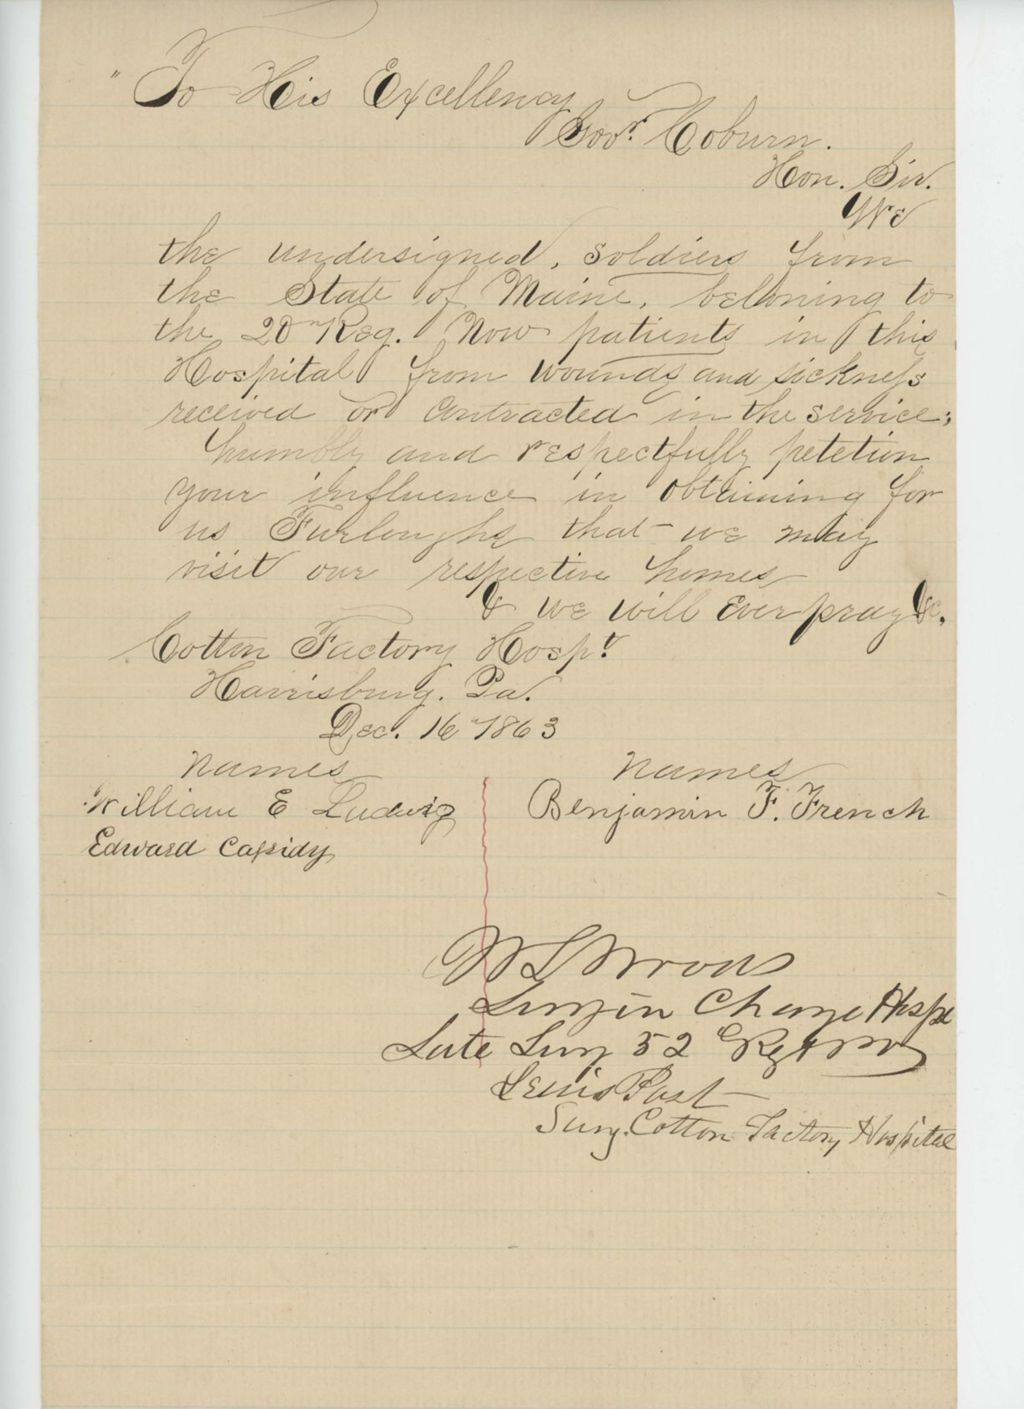 " To His Excellency
Govr. Coburn.
Hon. Sir.
We
the undersigned, soldiers from
the State of Maine, beloning to
the 20th Reg. Now patients in this
Hospital from wounds and sickness
received or contracted in the service;
humbly and respectfully petetion
your influence in obtaining for
us Furloughs that we may
visit our respective homes
& we will ever pray &c.
Cotton Factory Hospt.
Harrisburg. Pa.
Dec. 16th 1863
Names
Names
William E Ludwig
Benjamin F. French
Edward Cassidy
Surg in Charge Hospt
Late Surg 52 Regt
Lewis Post
Surg. Cotton Factory Hospital